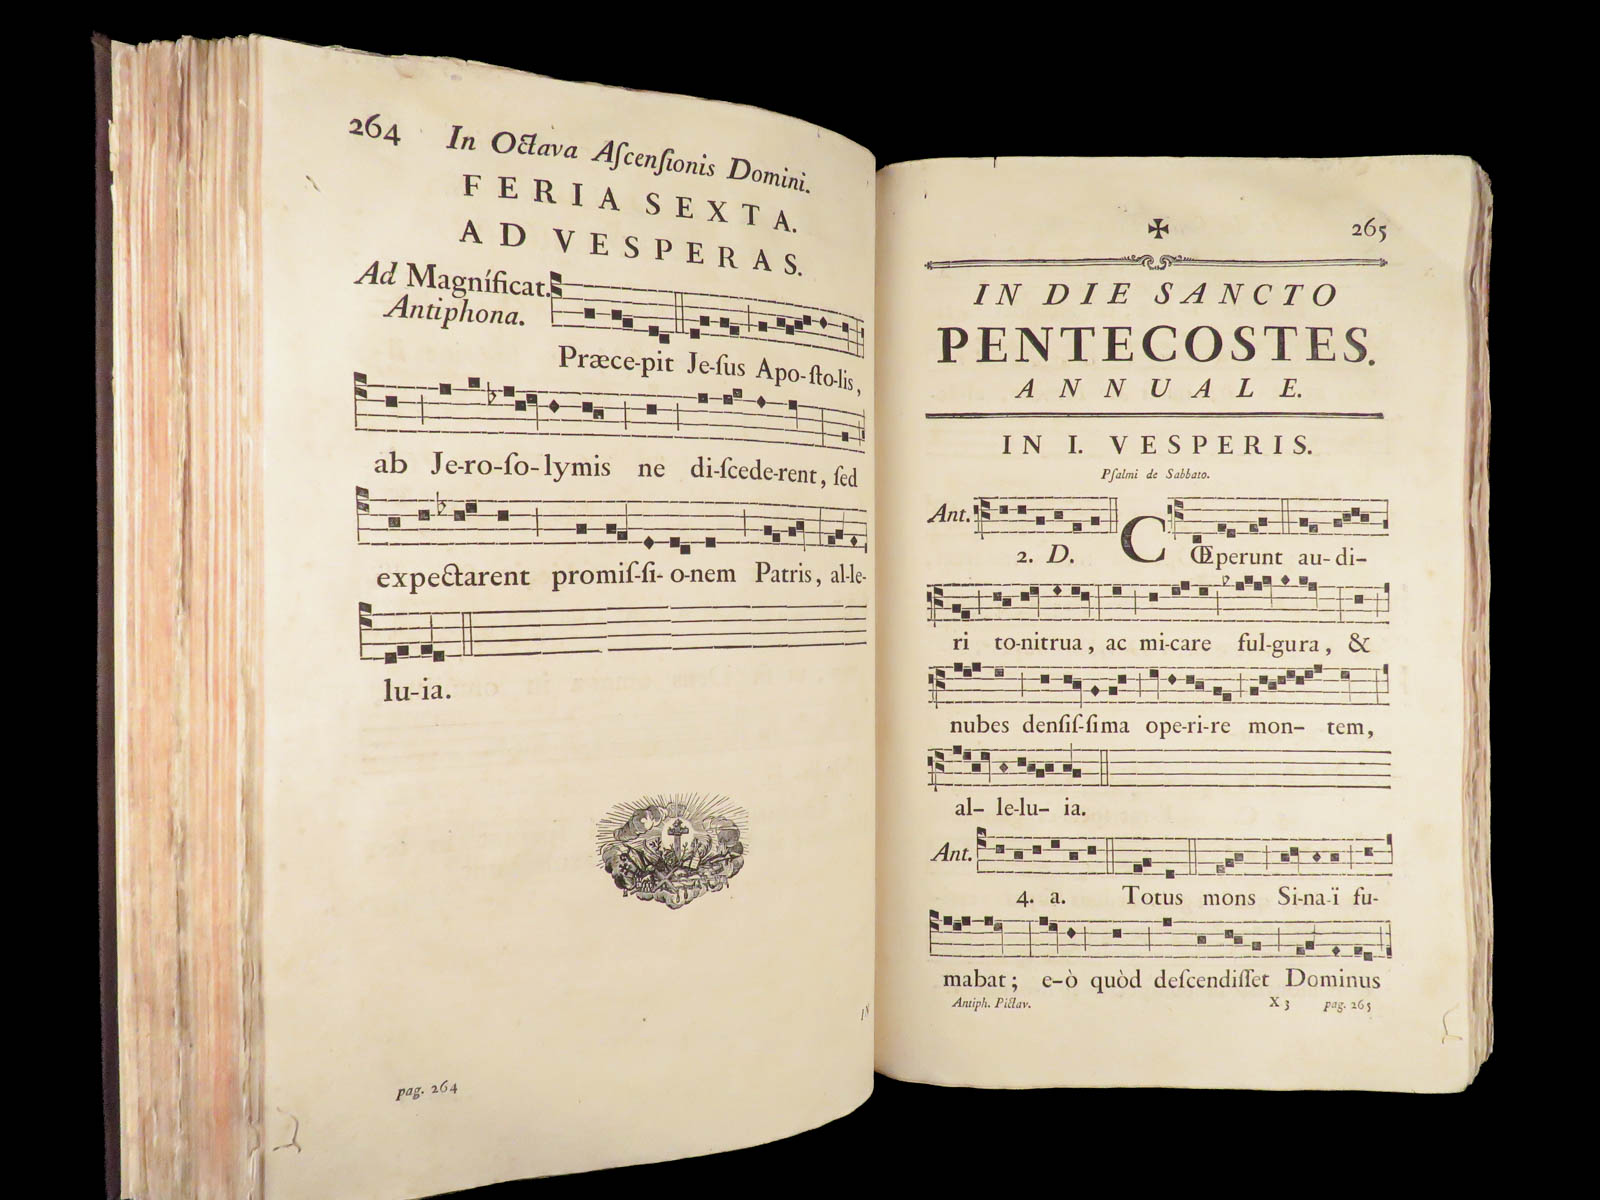 264 In Octava Aſcenſionis Domini.
FERIA SEXTA.
AD VESPERAS.
Ad Magníficat.
Antiphona.
Præce-pit Je-ſus Apo-ſto-lis,
ab Je-ro-ſo-lymis ne di-ſcede-rent, ſed
expectarent promiſ-ſi-o-nem Patris, al-le-
lu-ia.
pag. 264
✠ 265
IN DIE SANCTO
PENTECOSTES.
ANNUALE.
IN I. VESPERIS.
Pſalmi de Sabbato.
Ant.
2. D. CŒperunt au-di-
ri to-nitrua, ac mi-care ful-gura, &
nubes denſiſ-ſima ope-ri-re mon- tem,
al- le-lu- ia.
Ant.
4. a. Totus mons Si-na-ï fu-
mabat; e-ò quòd deſcendiſſet Dominus
Antiph. Pictav. X 3 pag. 265